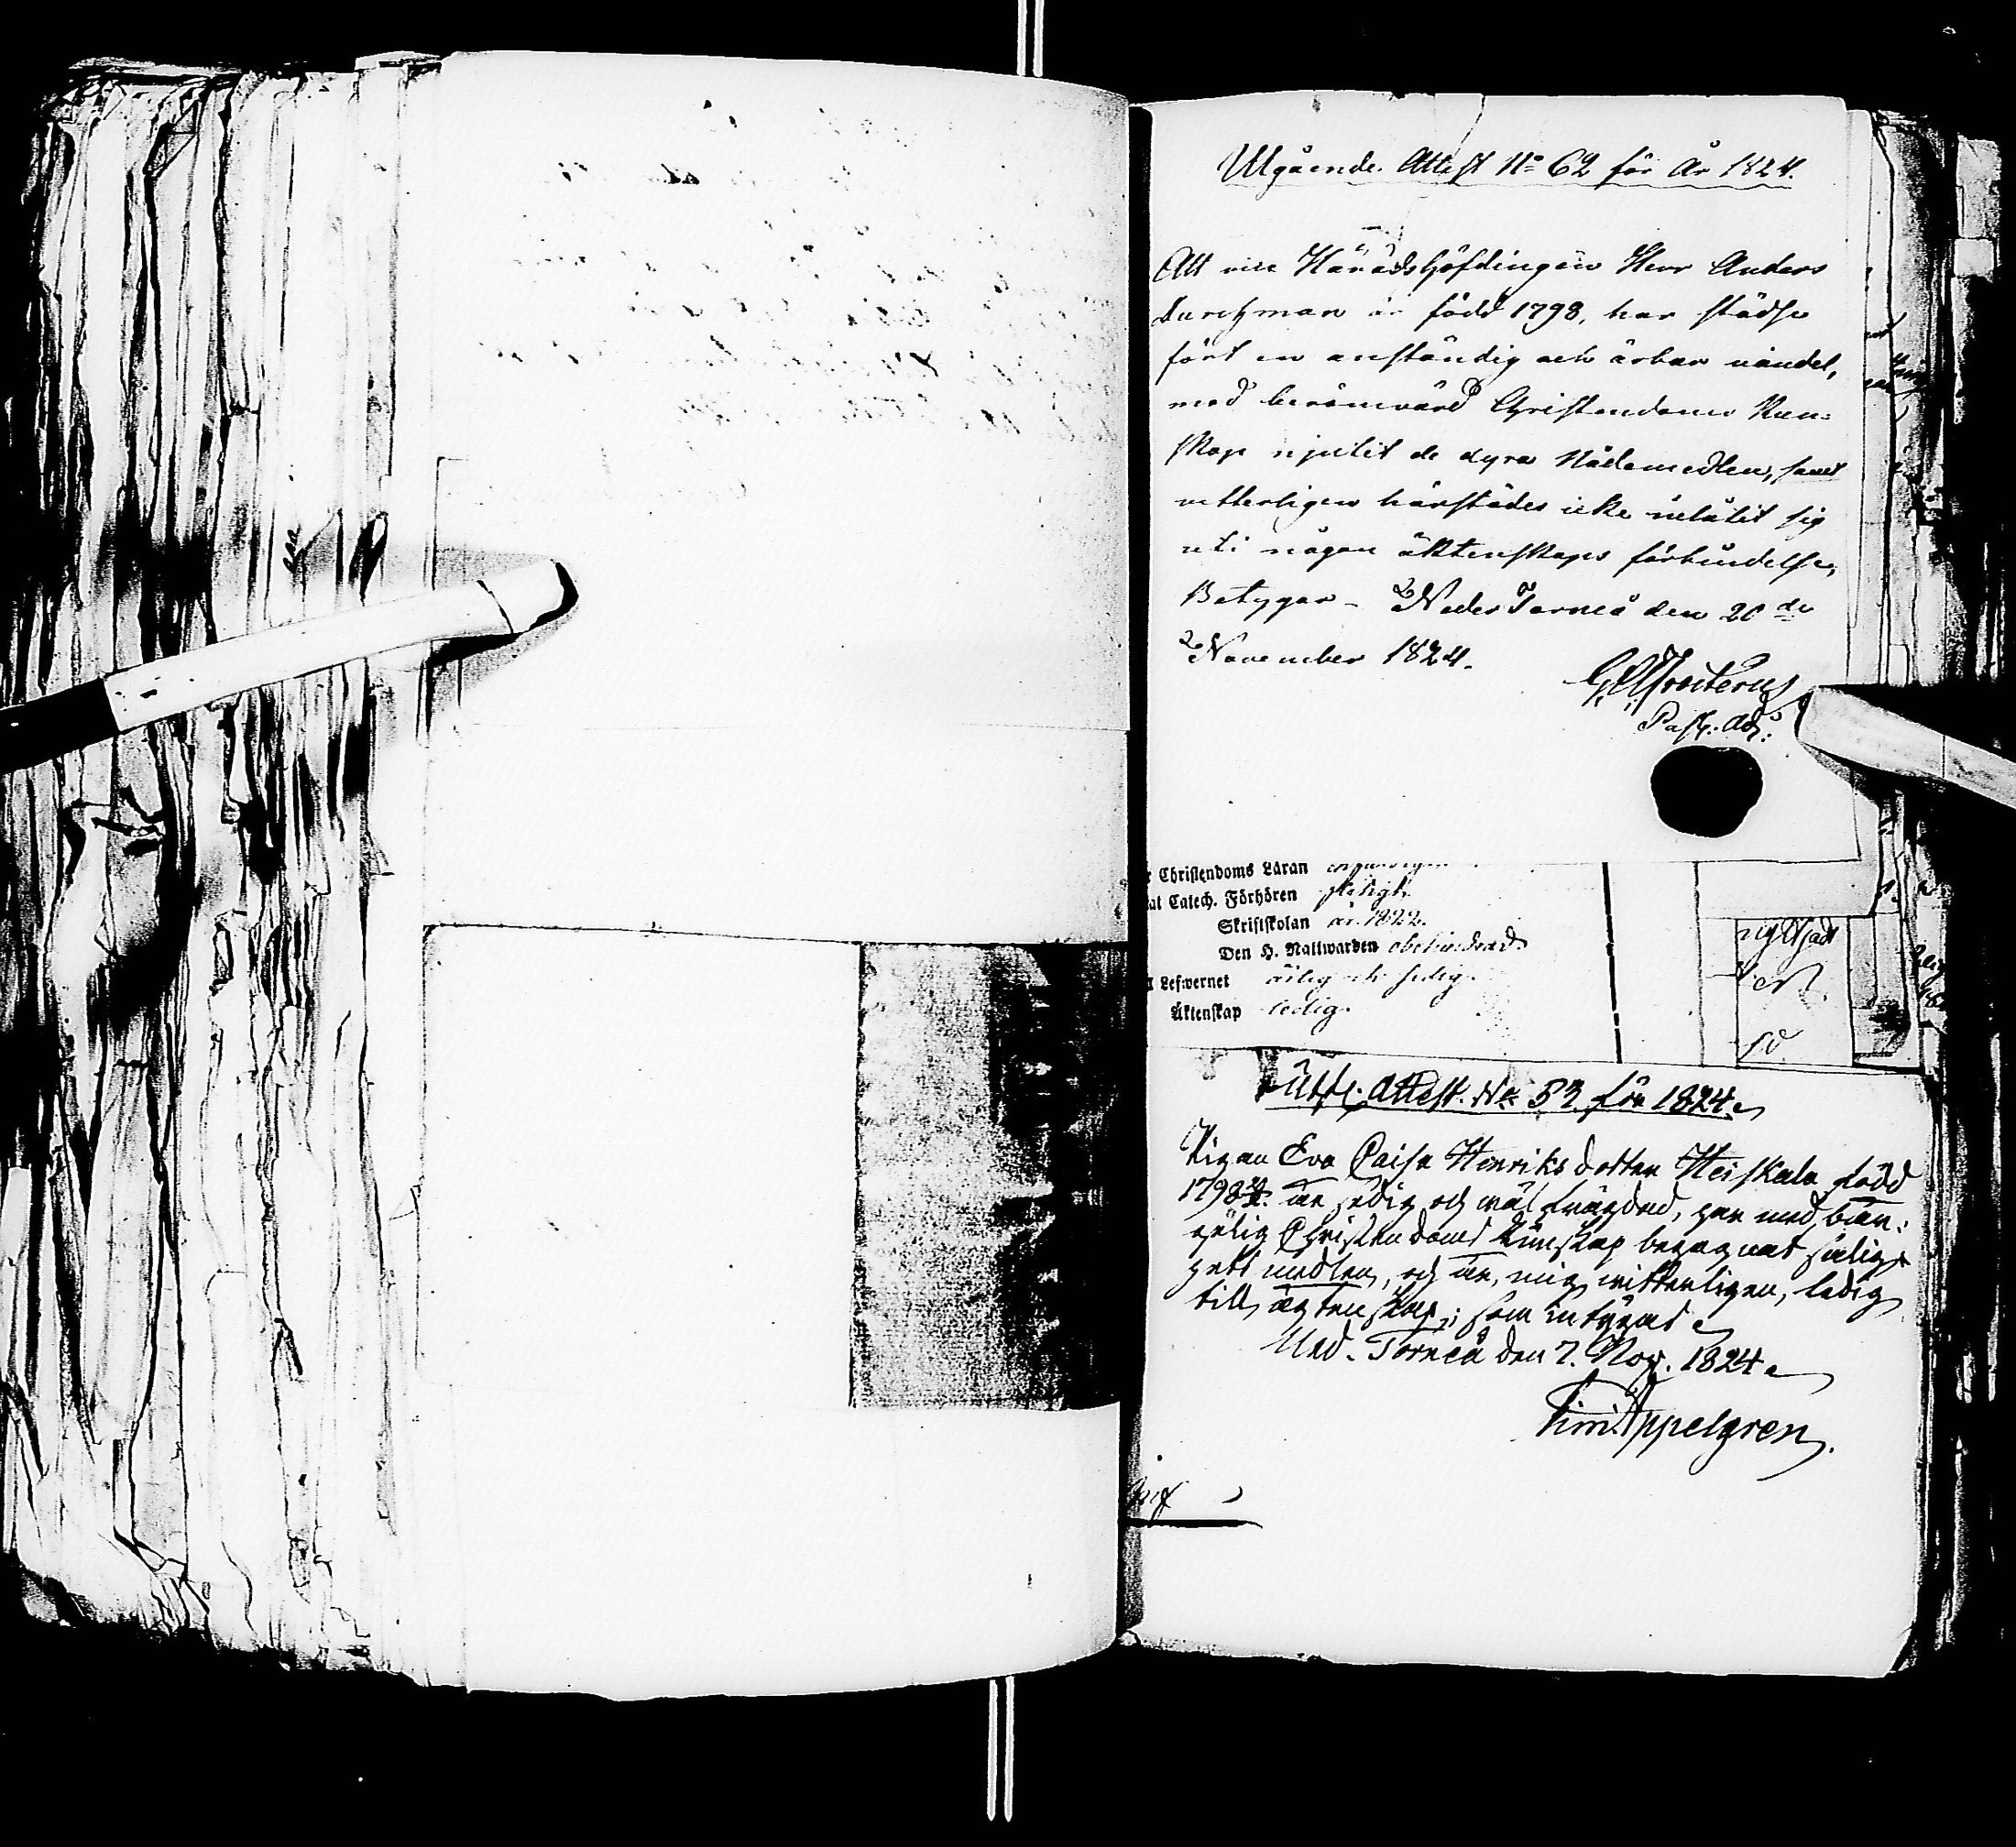 Utgående Attest No 62 för År 1824.
Att vice Häradshöfdingen Herr Anders
Durchman är född 1798, har städse
fört en anständig och ärbar vandel,
med berömvärd Christendoms Kun-
skap njutit de dyra Nådemedlen, samt
vetterligen härstädes icke inlåtit sig
uti någon äktenskaps förbindelse,
Betygar - Neder Torneå den 20de
November 1824.
Past. Adj:
Christendoms Läran
Catech. Förhören
Skriftskolan år 1822.
Den H. Nattwarden obehindrad
Lefwernet ärlig och sedig.
Äktenskap ledig.
Attest. No 53 för 1824.
Pigan Eva Caisa Henriksdotter Heiskala, född
1798 är sedig och väl frägdad, har med bär-
gelig Christendoms kunskap begagnat salig-
hets medlen, och är, mig vitterligen, ledig
till ägtenskap; som intygas
Ned. Torneå den 7. Nov. 1824
Appelgren.